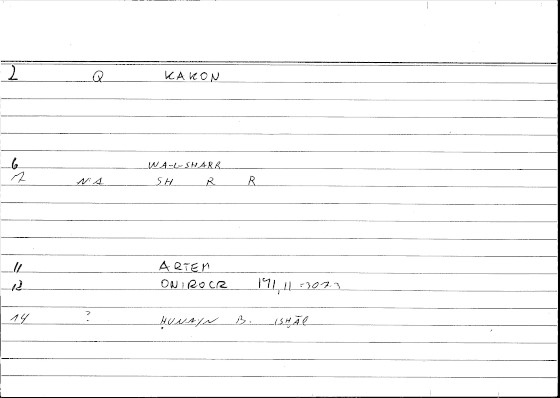 2 Q KAKON
6 WA-L-SHARR
7 NA SH R R
11 ARTEM
12 ONIROCR 191,11
14 ? ḤUNAYN B. ISḤĀQ